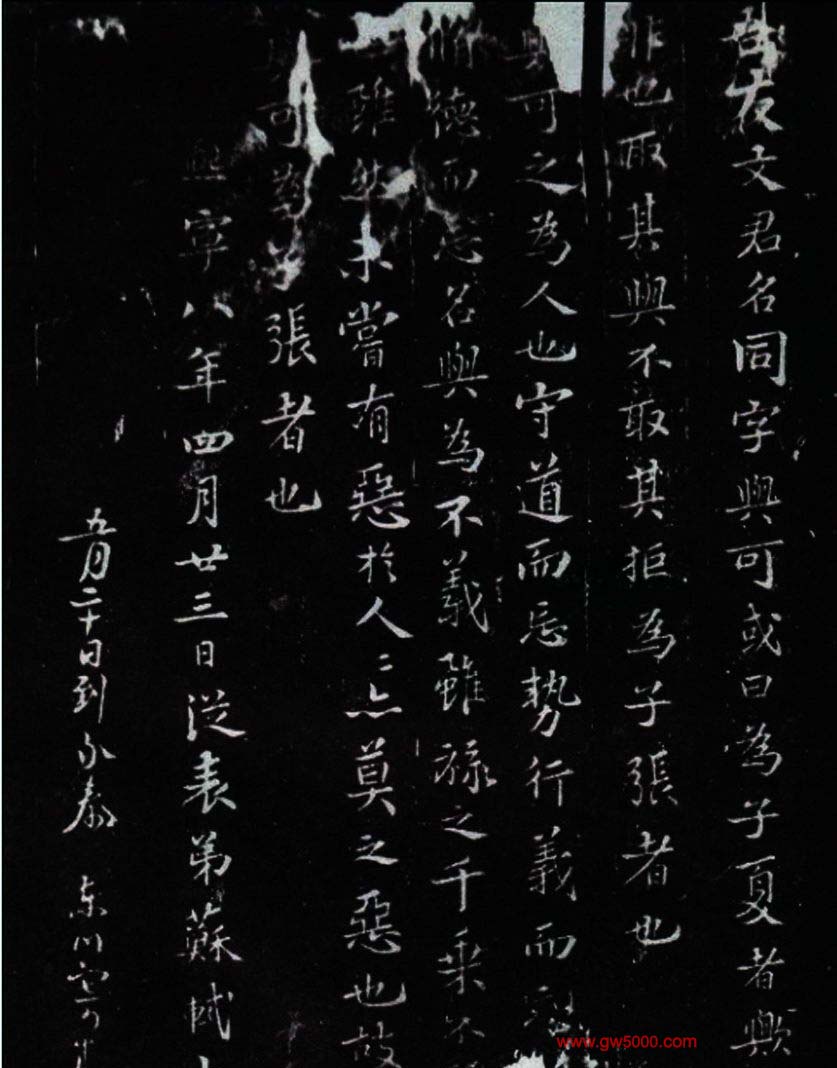 吾友文君名同字與可或曰為子夏者歟
非也取其與不取其拒為子張者也
與可之為人也守道而忘勢行義而忘
脩德而忘名與為不義雖祿之千乘不
雖然未嘗有惡於人〻亦莫之惡也故
與可為子張者也
熙寧八年四月廿三日從表弟蘇軾
五月二十日到永泰 東川
www.gw5000.com